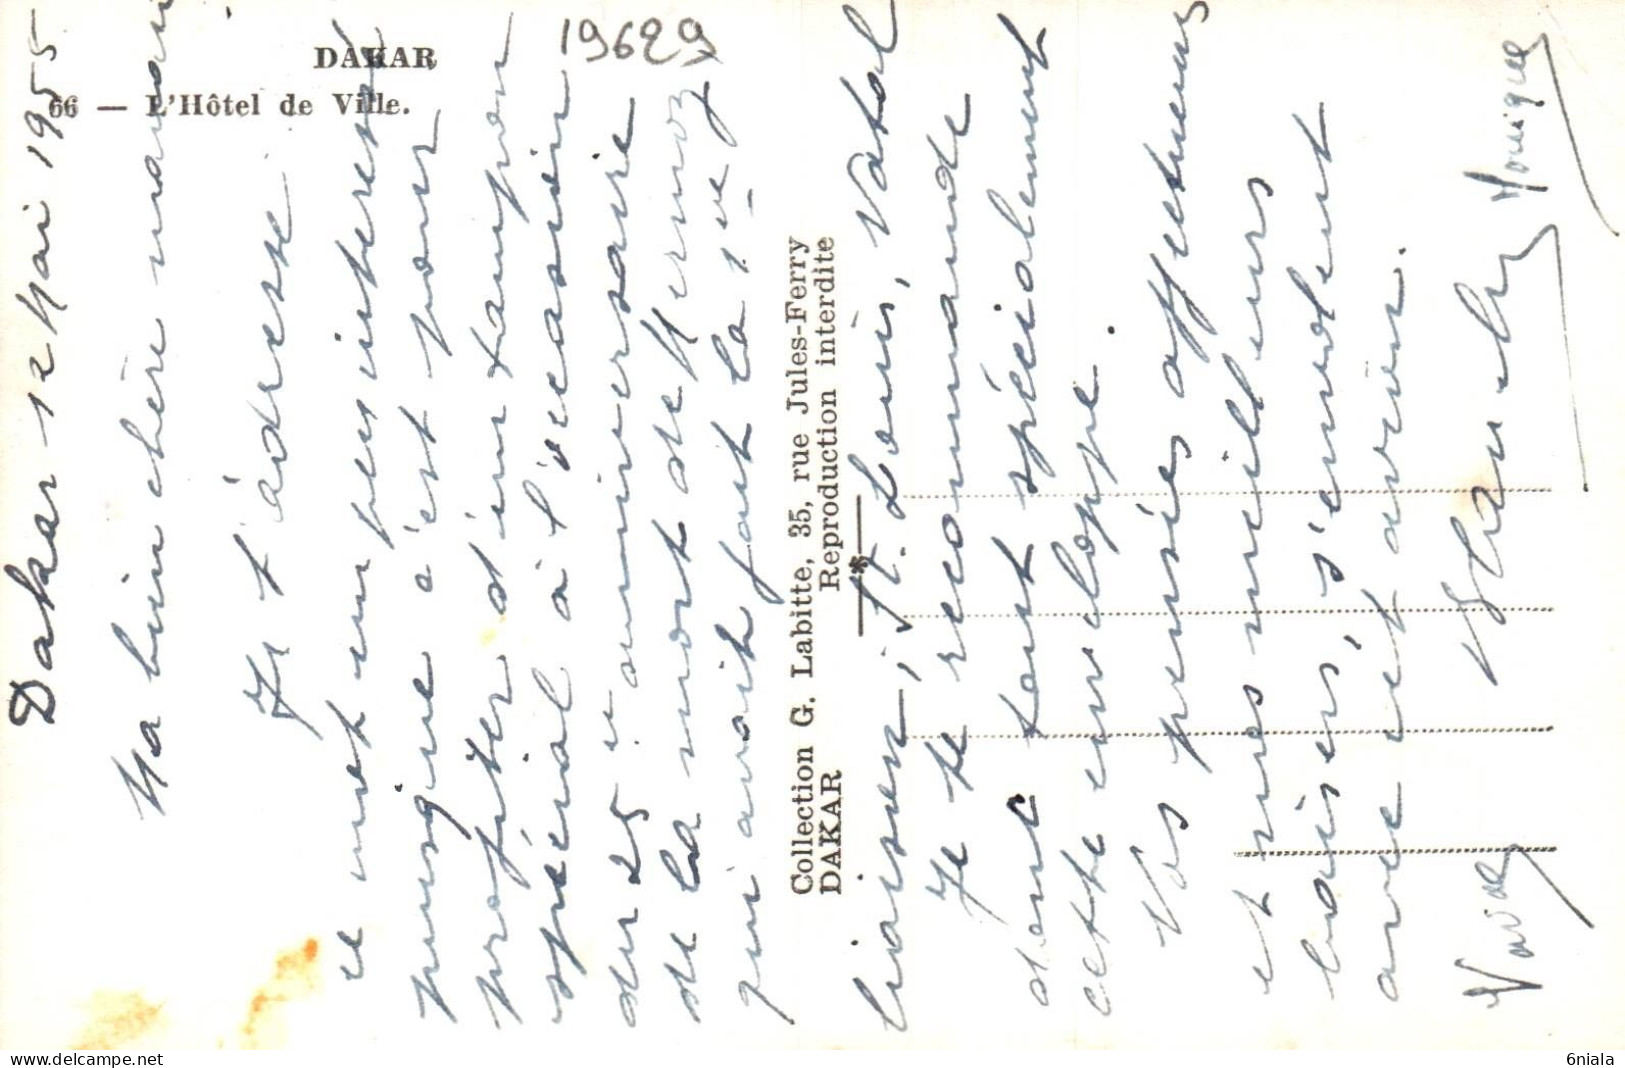 DAKAR
66 — L'Hôtel de Ville.
19629
Dakar 12 Mai 1955
Ma bien chère maman
Je t'adresse
ce mot un peu intéressé
puisque c'est pour
profiter d'un tampon
spécial à l'occasion
du 25e anniversaire
de la mort de Mermoz
qui avait fait la 1ère
Collection G. Labitte, 35, rue Jules-Ferry
DAKAR Reproduction interdite
liaison St. Louis, Natal
Je te recommande
donc tout spécialement
cette enveloppe.
Vos pensées affectueuses
et mes meilleurs
baisers, s'envolent
avec cet avion.
Monique
www.delcampe.net
6niala